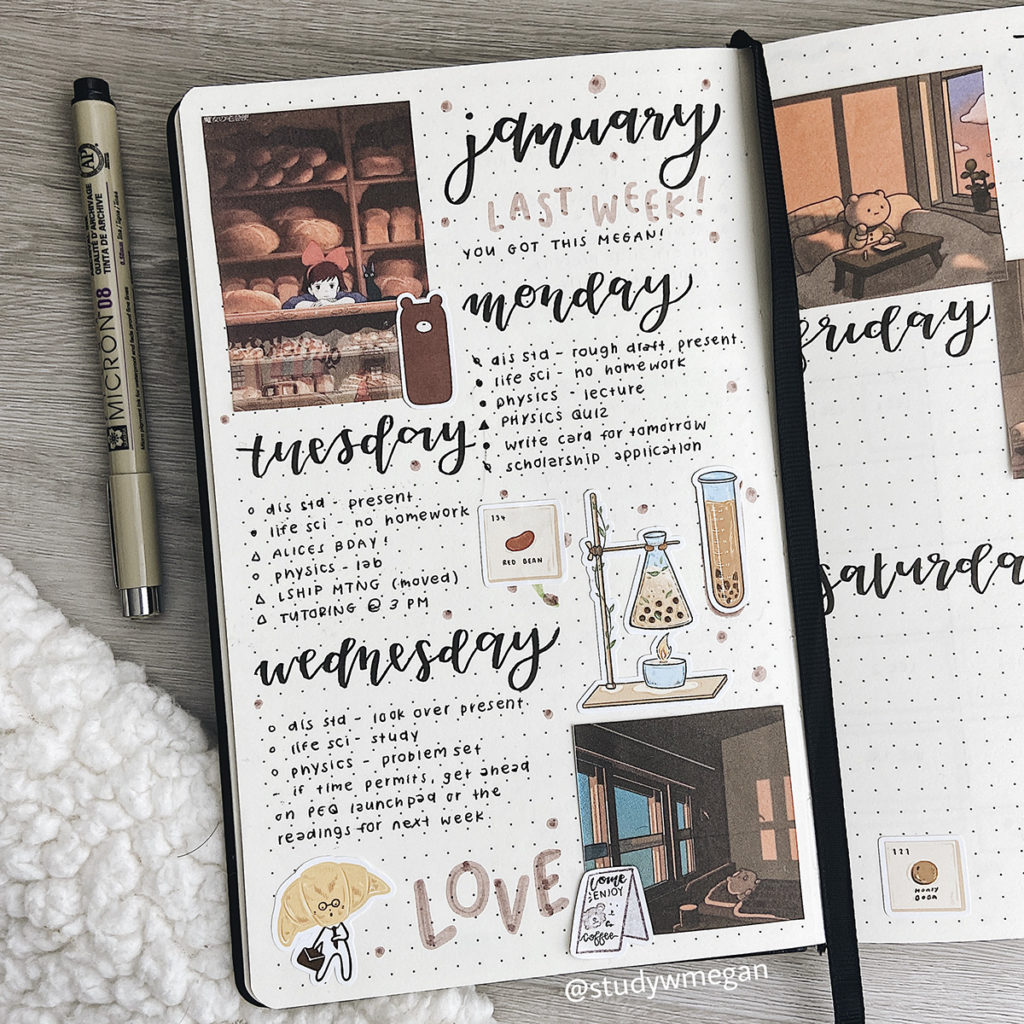 january
LAST WEEK!
YOU GOT THIS MEGAN!
monday
dis std - rough draft, present
life sci - no homework
physics - lecture
PHYSICS QUIZ
write card for tomorrow
scholarship application
tuesday
dis std - present
life sci - no homework
ALICES BDAY!
physics - lab
LSHIP MTNG (moved)
TUTORING @ 3 PM
134
RED BEAN
wednesday
dis std - look over present.
life sci - study
physics - problem set
- if time permits, get ahead
on PEQ launchpad or the
readings for next week.
LOVE
come
ENJOY
coffee
@studywmegan
friday
saturda
121
HONEY
BOBA
MICRON 08
AP
QUALITÉ D'ARCHIVAGE
TINTA DE ARCHIVE